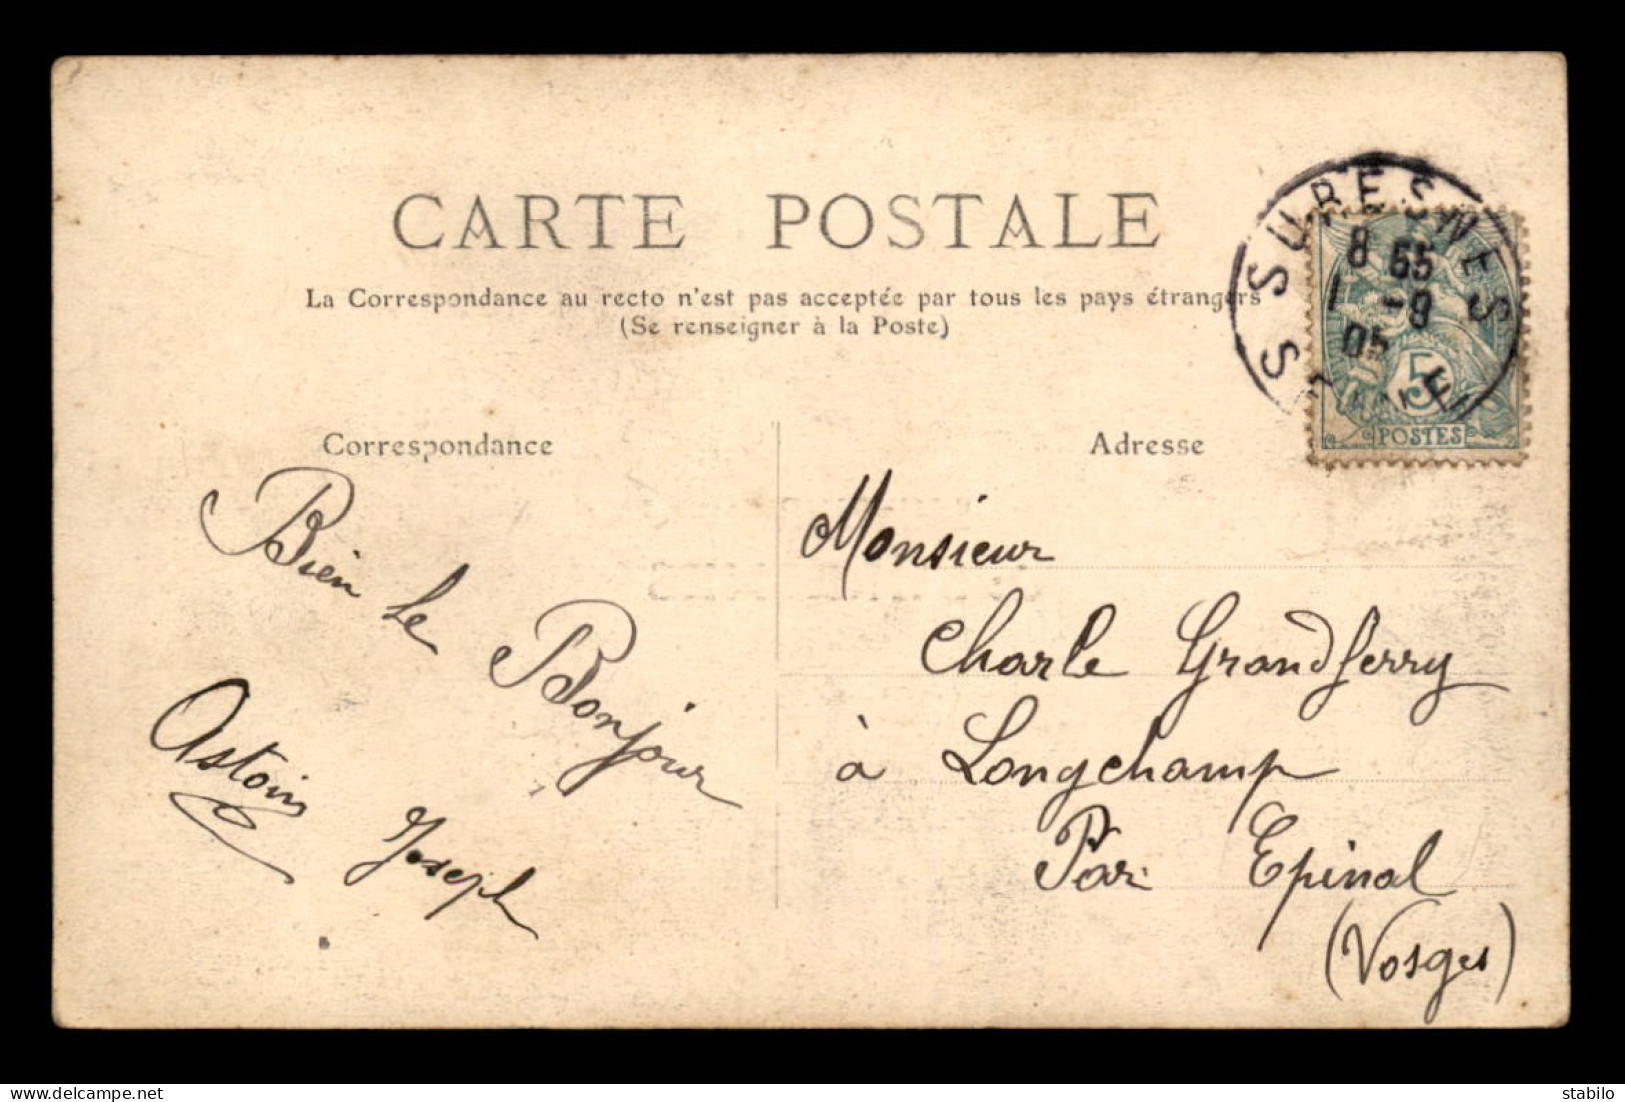 CARTE POSTALE
La Correspondance au recto n'est pas acceptée par tous les pays étrangers
(Se renseigner à la Poste)
SURESNES
8 55
1 -9
05
SEINE
5
POSTES
Correspondance
Adresse
Bien le Bonjour
Astoin
Joseph
Monsieur
Charle Grandferry
à Longchamp
Par Epinal
(Vosges)
stabilo